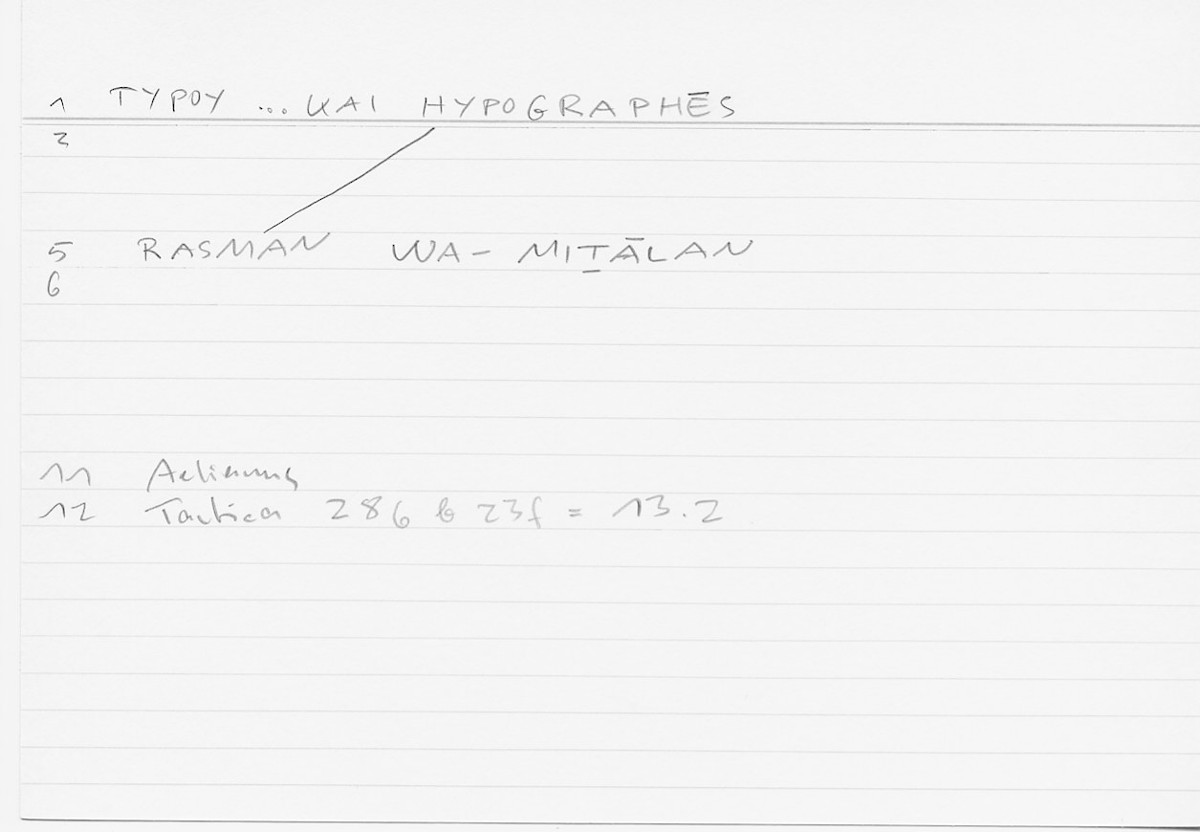 1 TYPOY ... KAI HYPOGRAPHĒS
2
5 RASMAN WA- MIṮĀLAN
6
11 Aelianus
12 Tactica 286 b 23f = 13.2